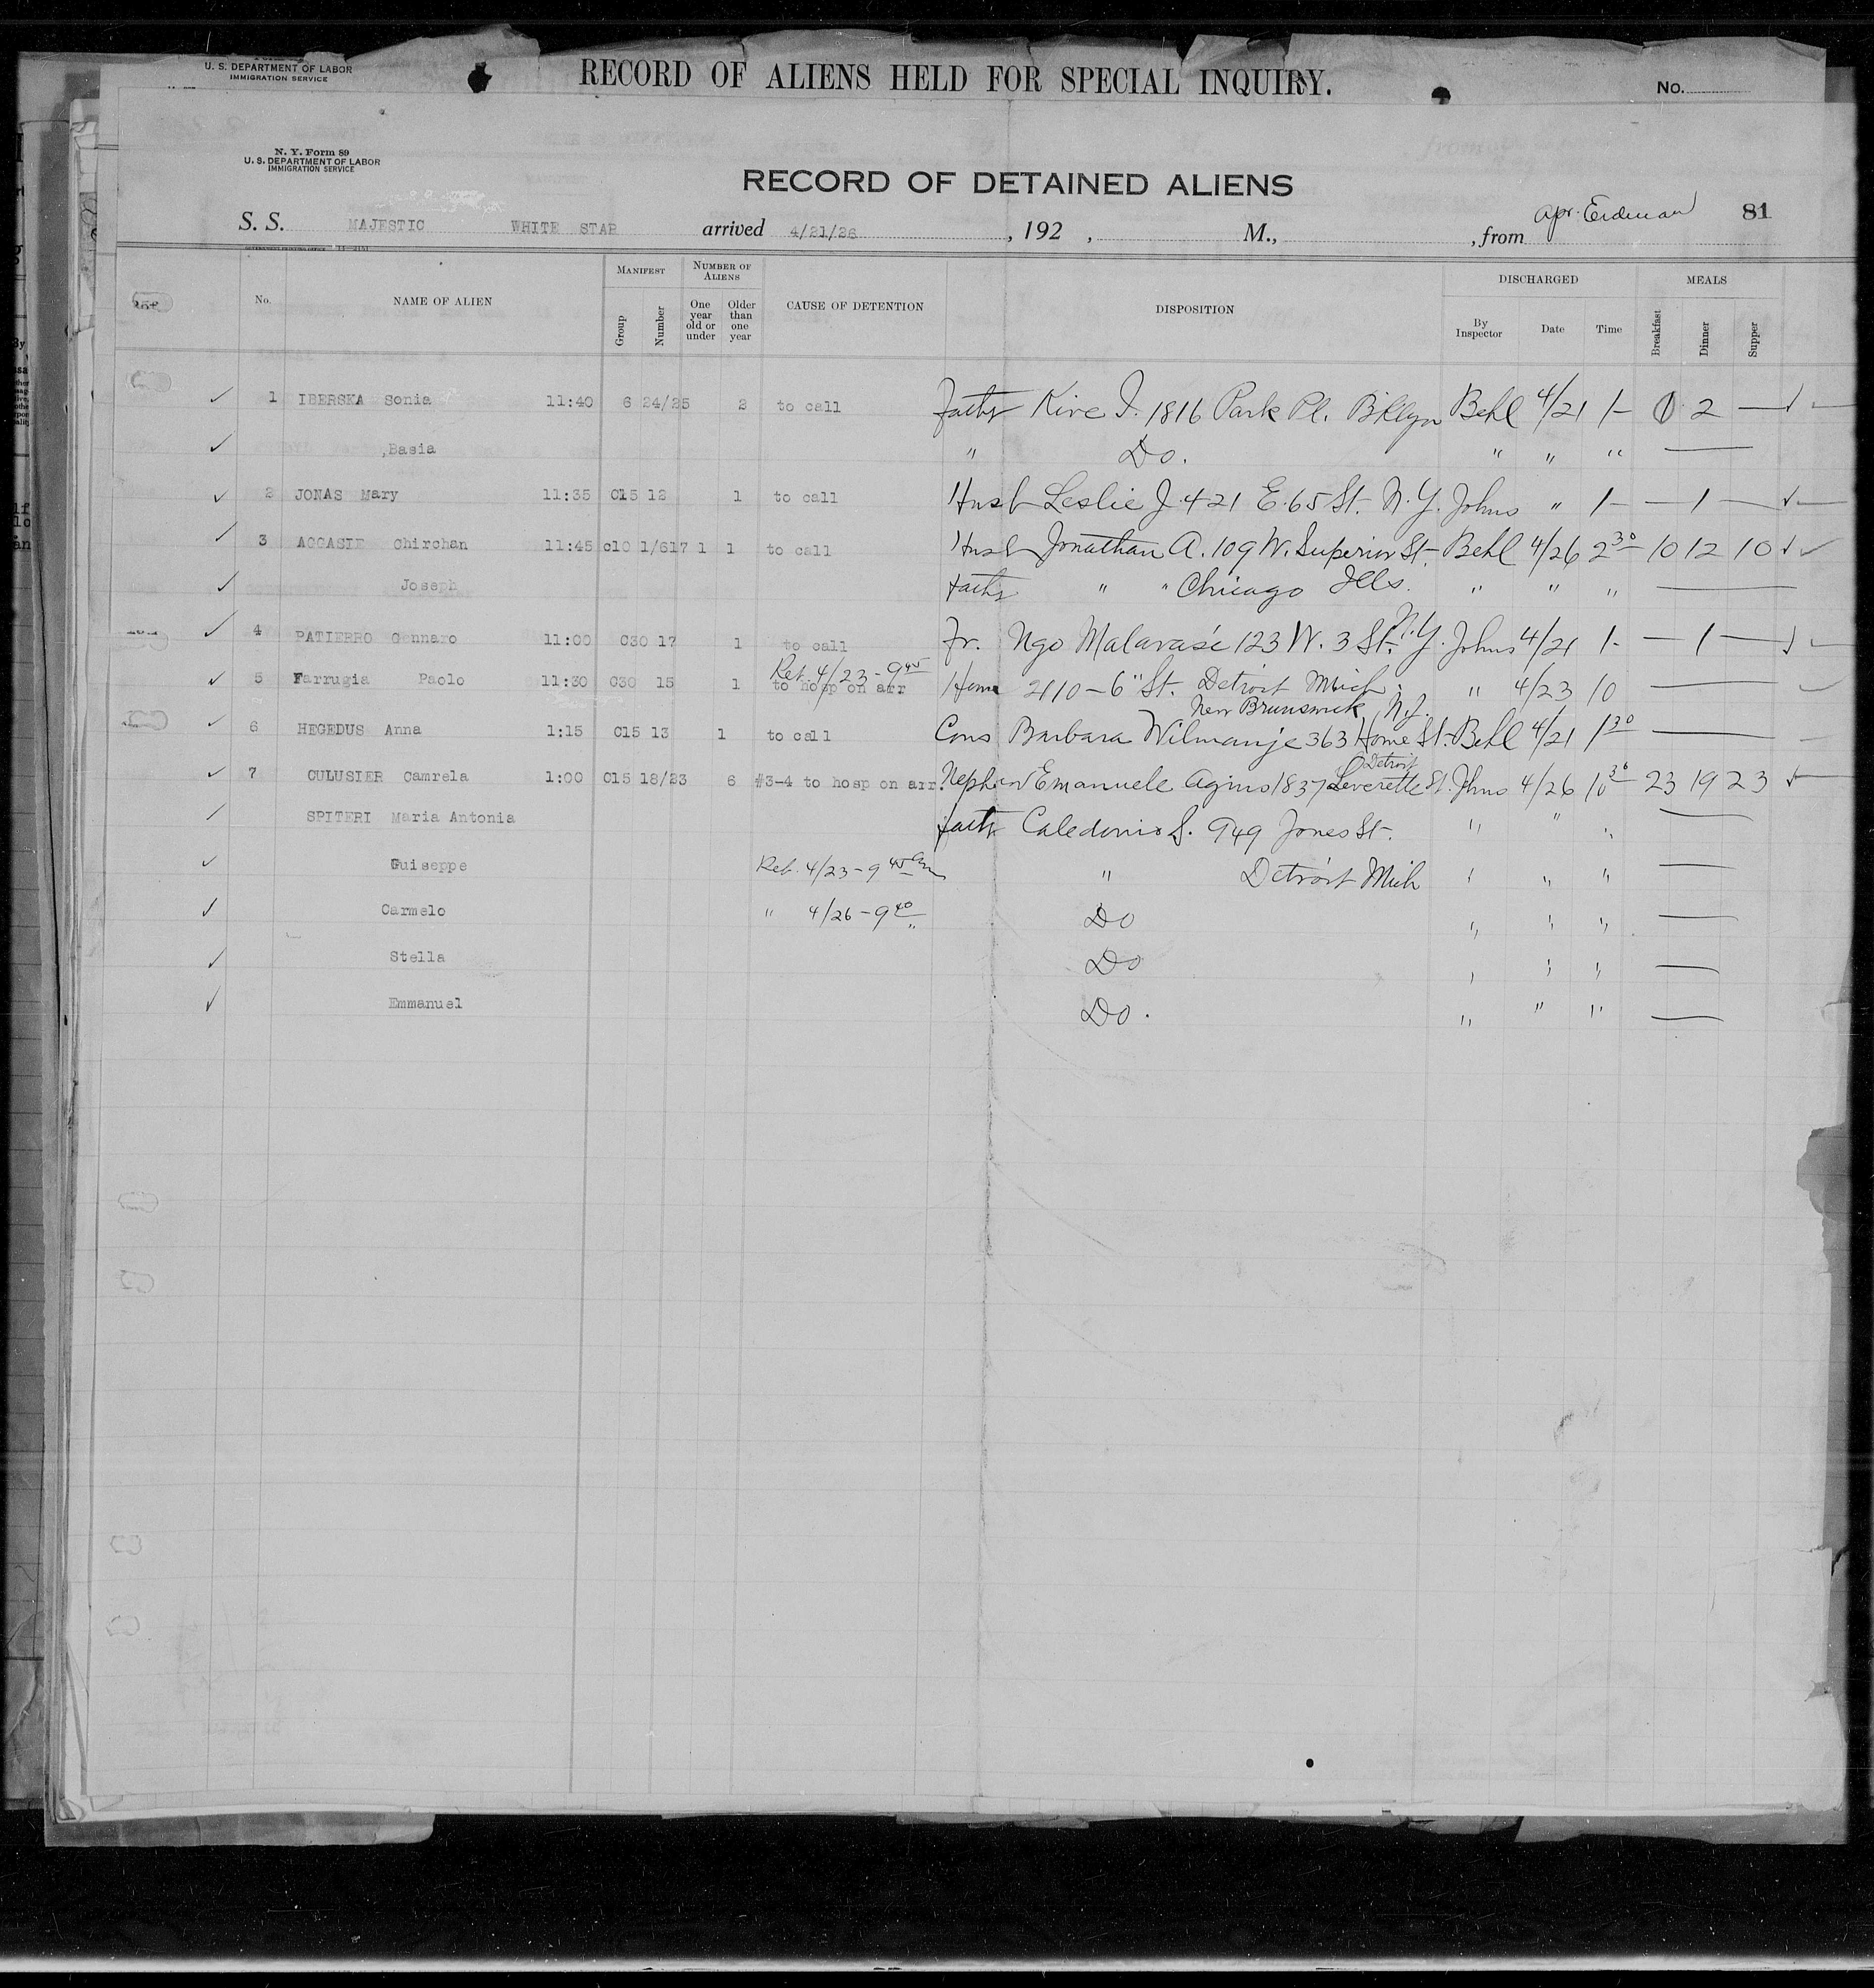 U. S. DEPARTMENT OF LABOR
IMMIGRATION SERVICE
RECORD OF ALIENS HELD FOR SPECIAL INQUIRY.
No.
N. Y. Form 89
U. S. DEPARTMENT OF LABOR
IMMIGRATION SERVICE
RECORD OF DETAINED ALIENS
S. S. MAJESTIC WHITE STAR arrived 4/21/26 , 192 , M., , from Apr. Erdman 81
No. NAME OF ALIEN MANIFEST Group Number NUMBER OF ALIENS One year old or under Older than one year CAUSE OF DETENTION DISPOSITION DISCHARGED By Inspector Date Time MEALS Breakfast Dinner Supper
✓ 1 IBERSKA Sonia 11:40 6 24/25 2 to call Fathr Kive I. 1816 Park Pl. Bklyn Behl 4/21 1– 2 —
✓ Basia " Do. " " " —
✓ 2 JONAS Mary 11:35 C15 12 1 to call Husb Leslie J. 421 E. 65 St. N.Y. Johns " 1– — 1 —
✓ 3 ACCASIE Chirchan 11:45 c10 1/617 1 1 to call Husb Jonathan A. 109 W. Superior St. Behl 4/26 2 30 10 12 10
✓ Joseph Fathr " " Chicago Ills. " " " —
✓ 4 PATIERRO Gennaro 11:00 C30 17 1 to call Fr. Ngo Malavasi 123 W. 3 St. N.Y. Johns 4/21 1– — 1 —
Ret. 4/23 - 9 45
✓ 5 Farrugia Paolo 11:30 C30 15 1 to hosp on arr Home 2110 – 6" St. Detroit Mich. " 4/23 10 —
New Brunswick, N.J.
✓ 6 HEGEDUS Anna 1:15 C15 13 1 to call Cous Barbara Wilmanje 363 Home St. Behl 4/21 1 30 —
Detroit
✓ 7 CULUSIER Camrela 1:00 C15 18/23 6 #3-4 to hosp on arr. Nephew Emanuele Agius 1837 Leverette St. Jhns 4/26 10 30 23 19 23
✓ SPITERI Maria Antonia fathr Caledonio S. 949 Jones St. " " " —
✓ Guiseppe Ret. 4/23 - 9 45 am " Detroit Mich " " " —
✓ Carmelo " 4/26 - 9 40 " Do " " " —
✓ Stella Do " " " —
✓ Emmanuel Do. " " " —